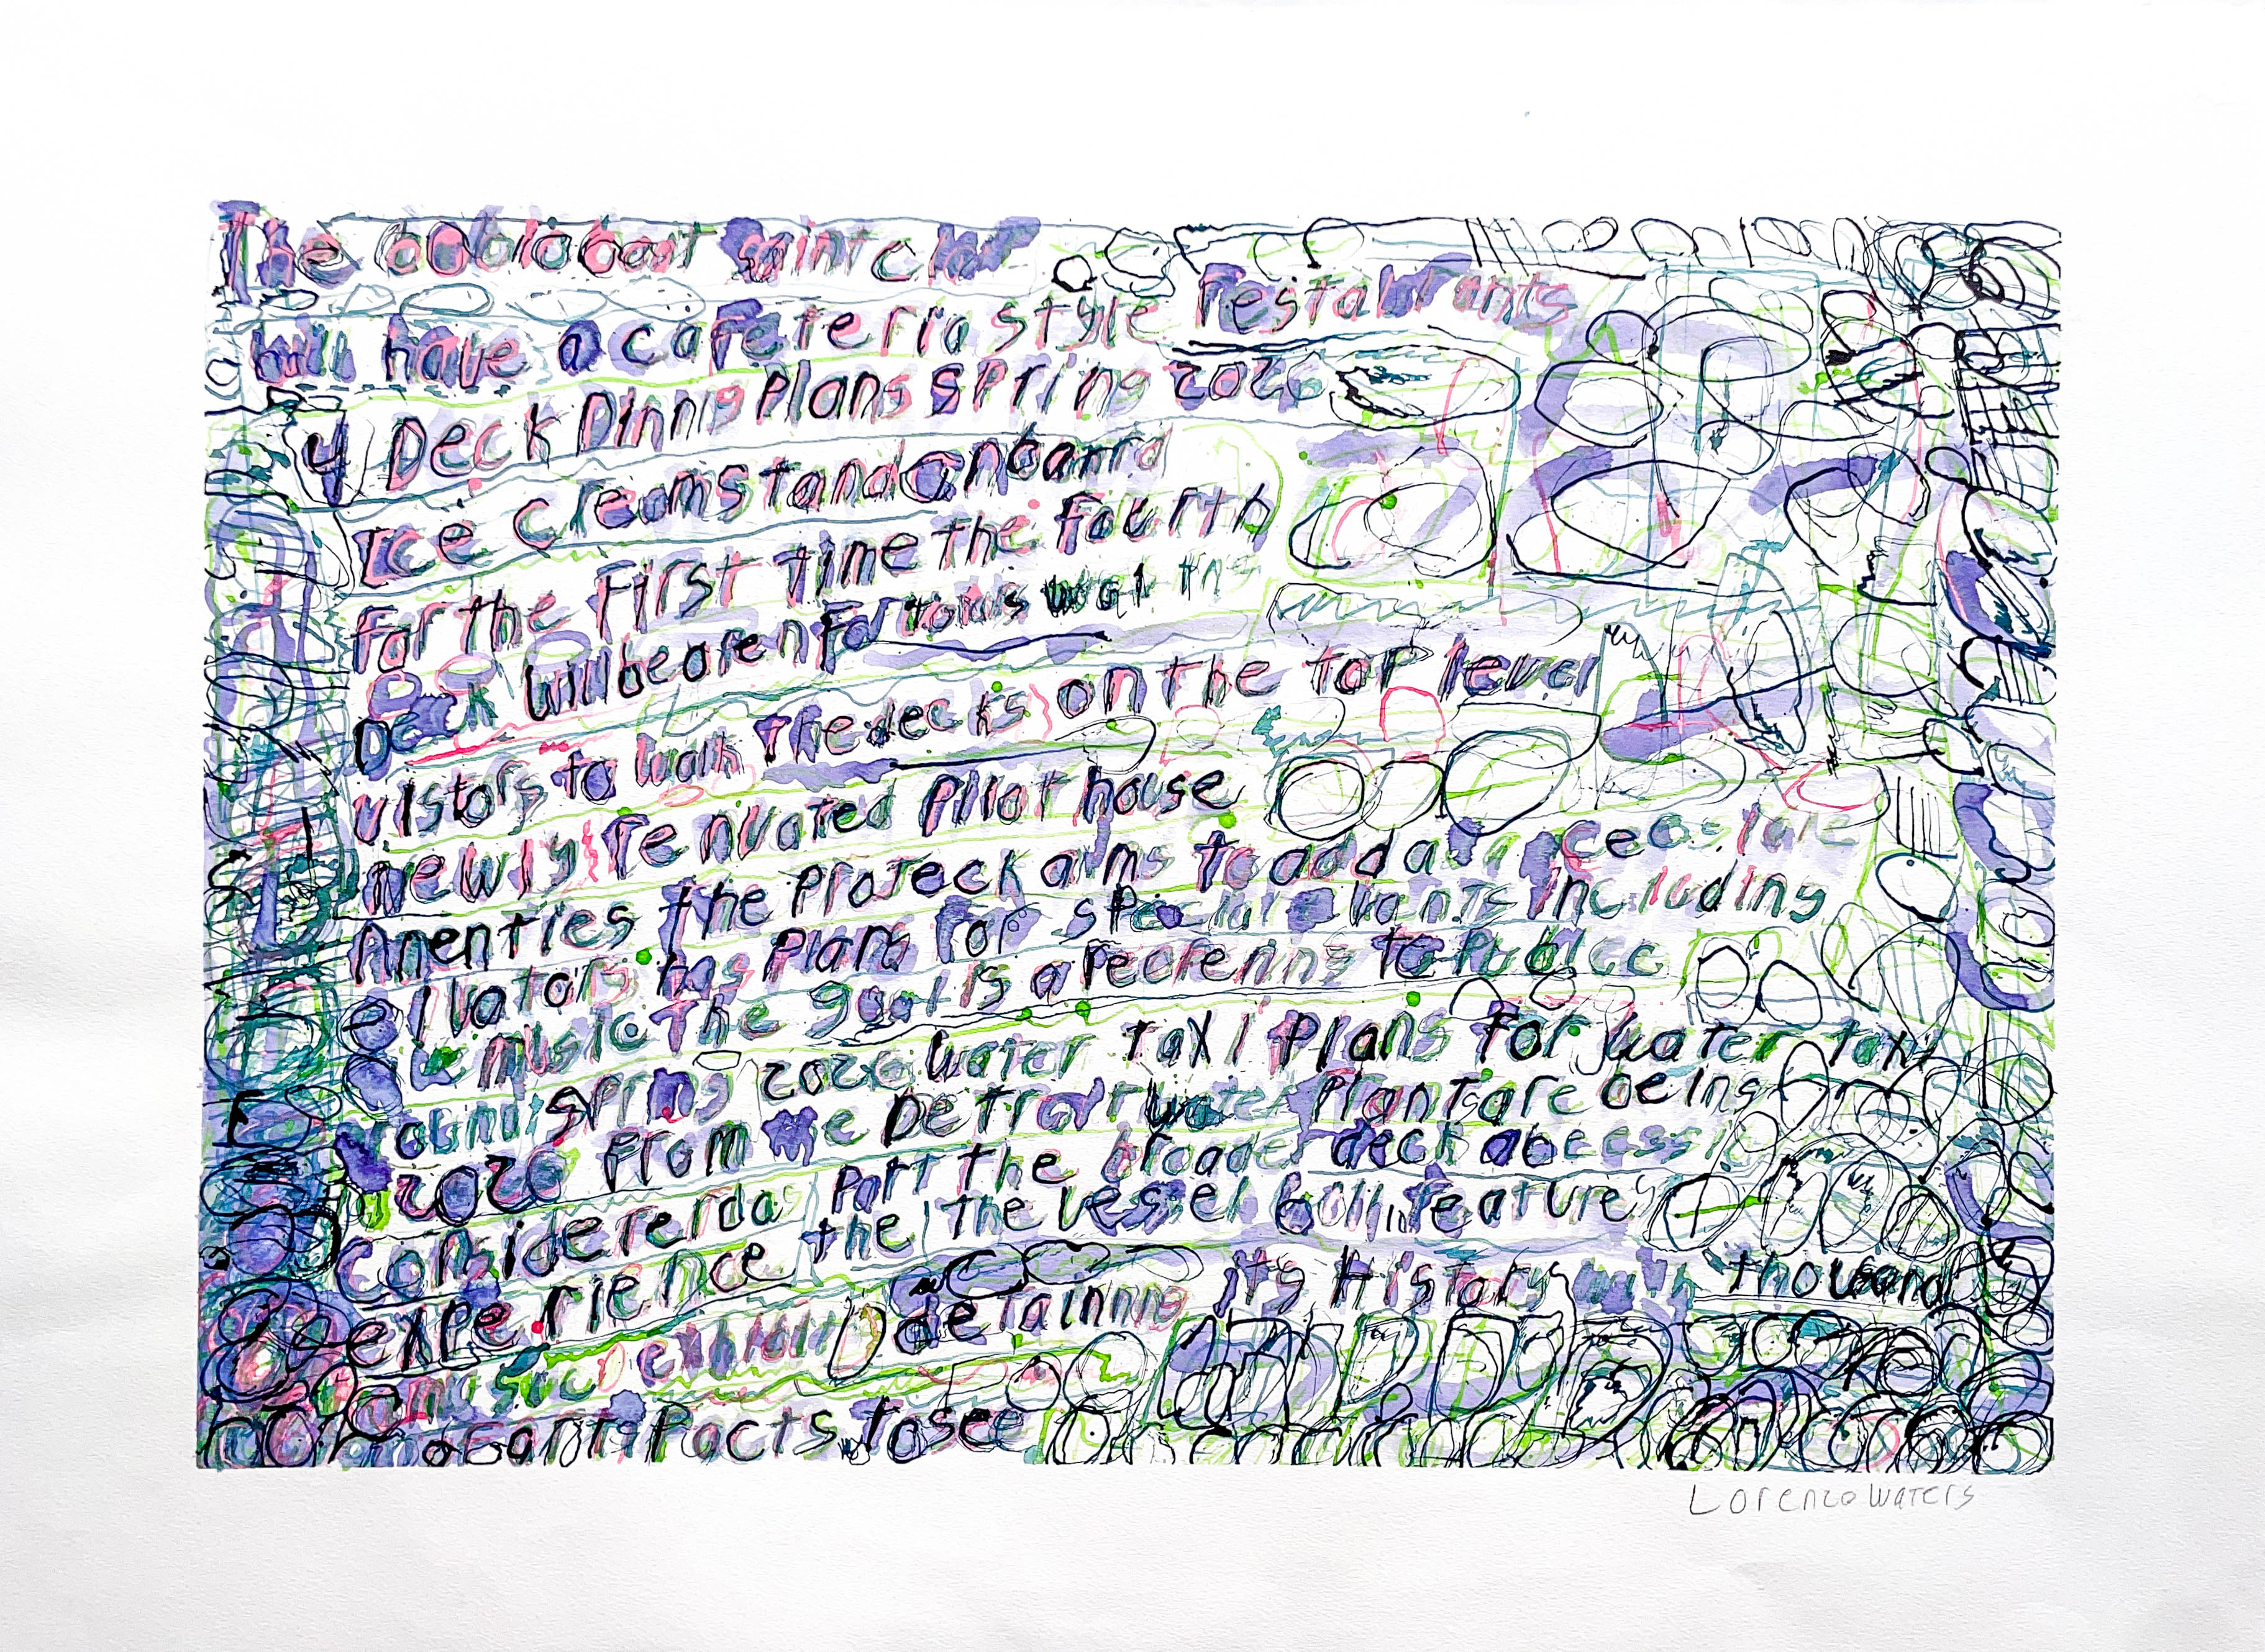 The boblo boat saint clar
will have a cafeterria style restaurants
4 Deck Dinnig Plans spring 2026
Ice creamstand onboard
for the First time the fourth
Deck will be open For
vistors to walk the decks on the top level
newly renuated Pilot house
Amenties the Projeck aims to add a
ellvators has plans for special including
music the goal is a reopening to Publcc
spring 2026 water taxi plans for water taxi
2026 From the Detroit water Plants are being
Considererdas Part the broader deck
experience the the vessel will feature
detainning its History with thousand
Facts to see
Lorenzo Waters